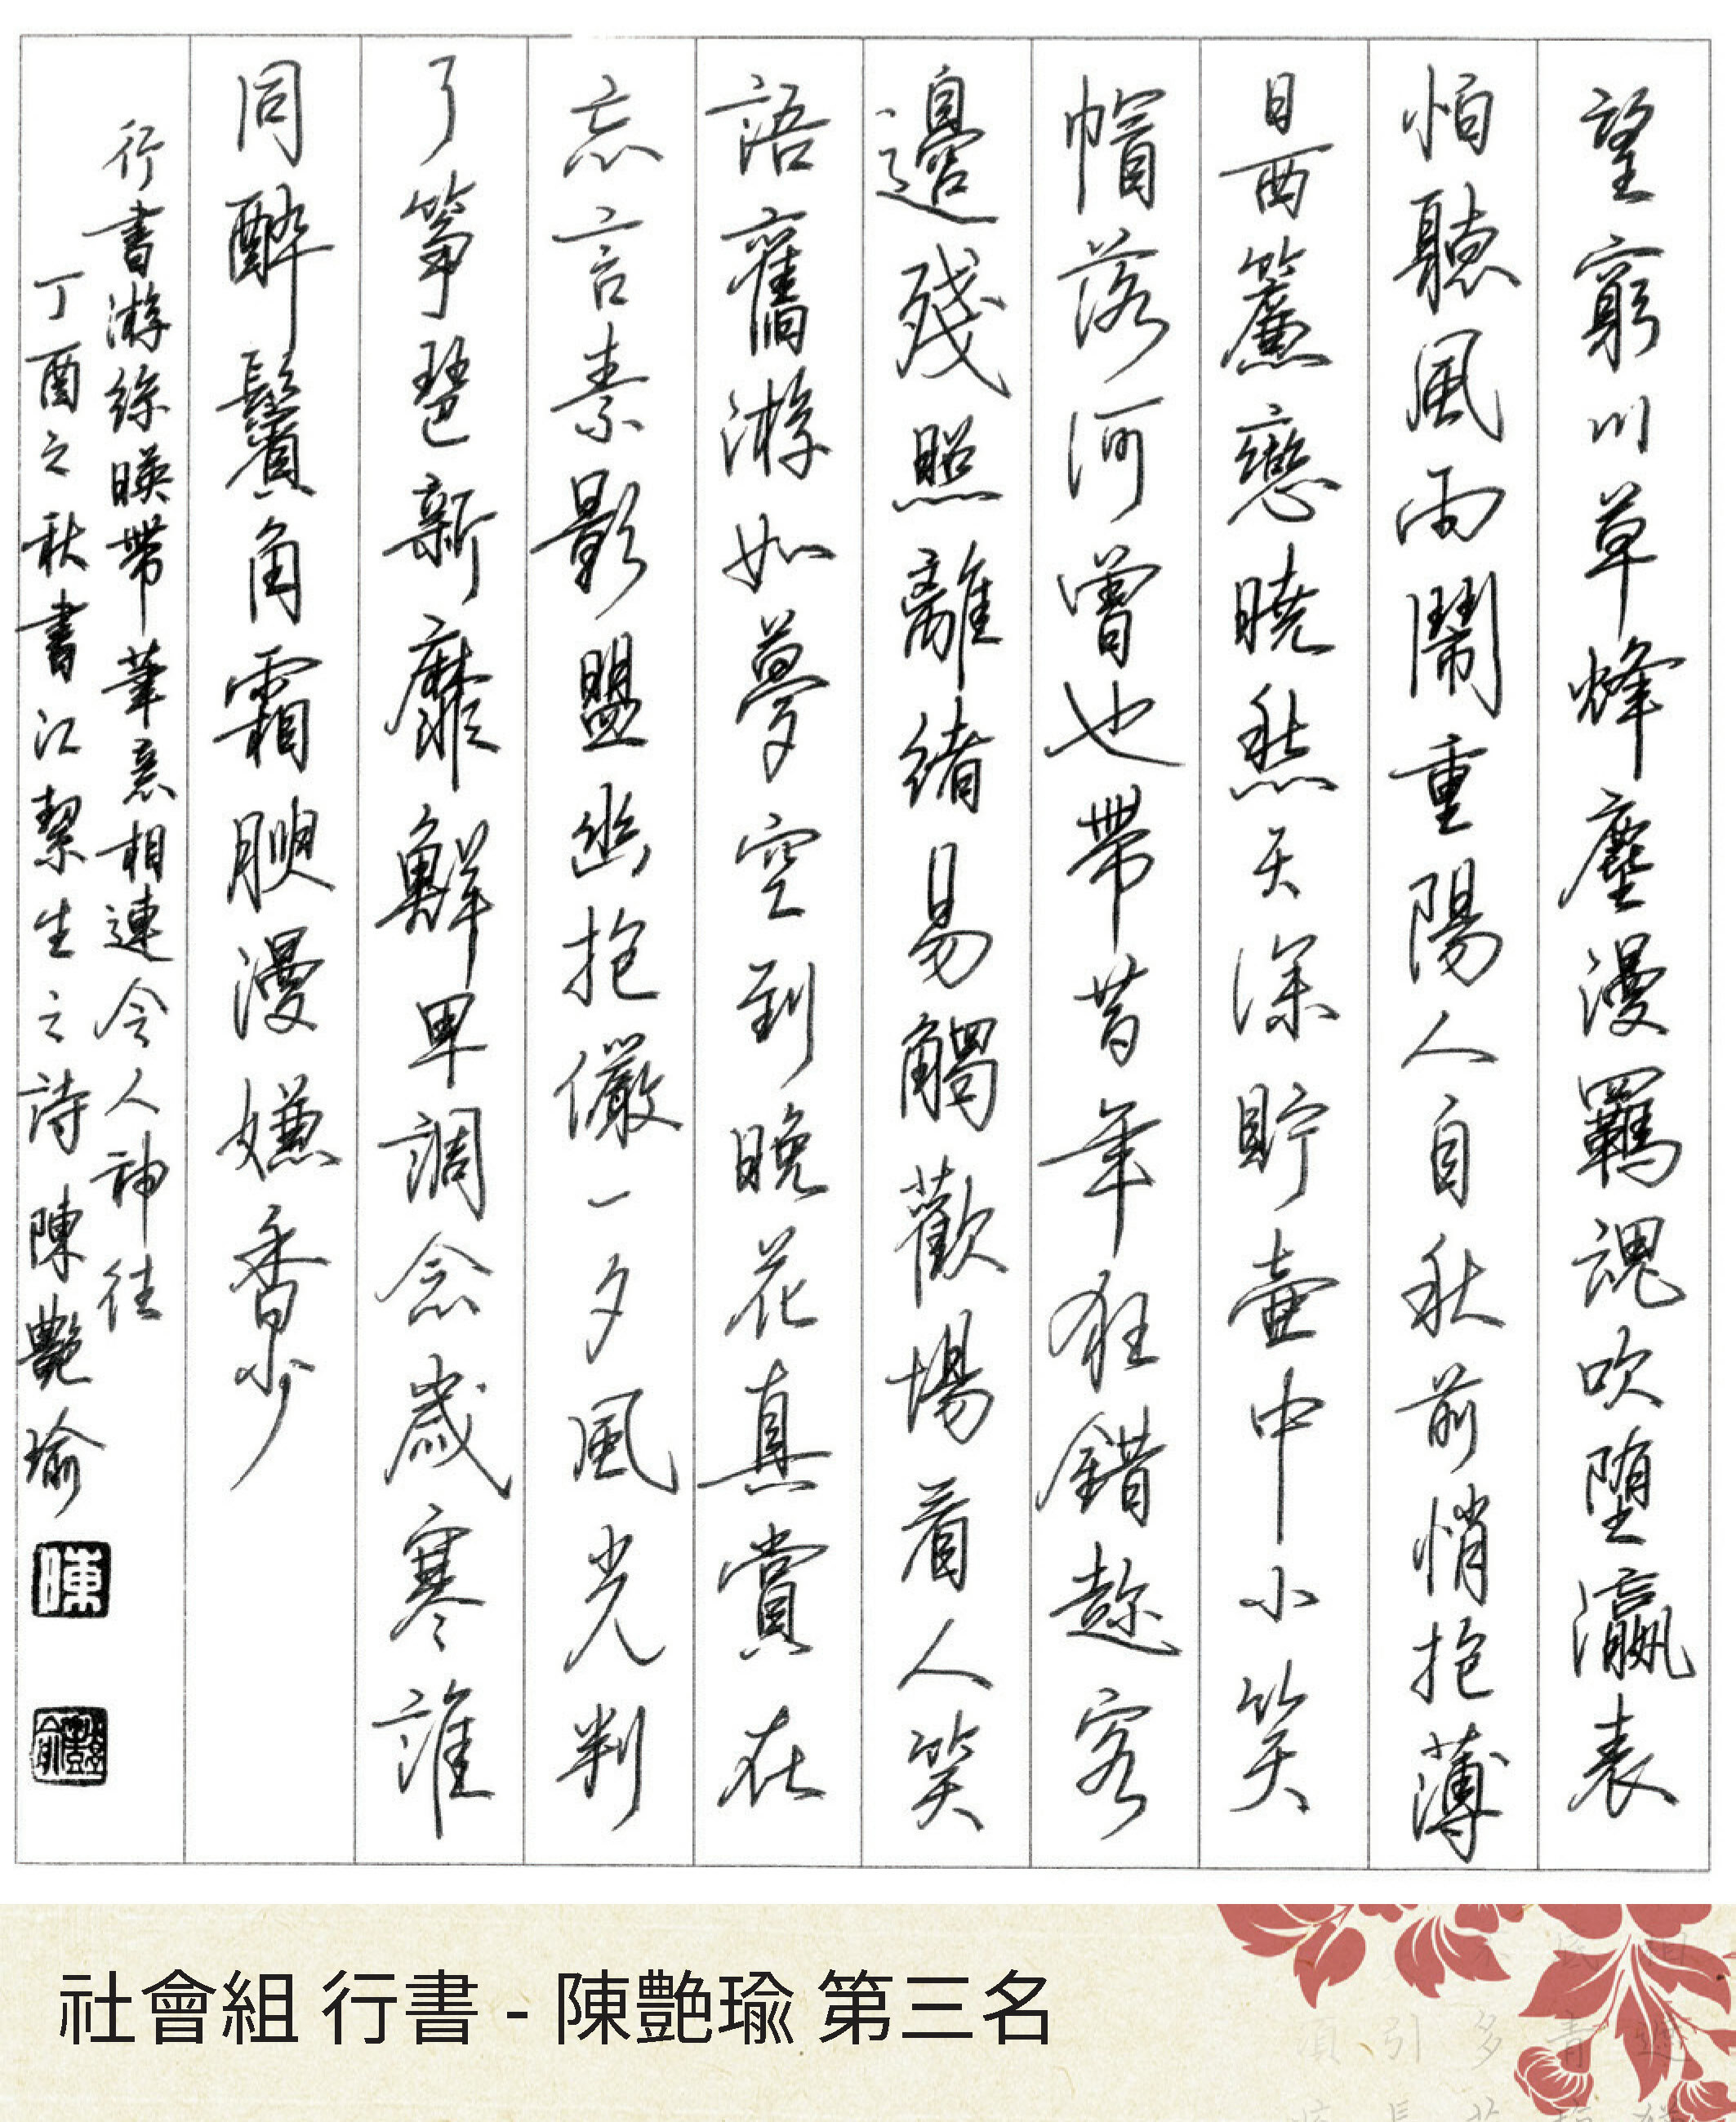 望窮川草烽塵漫羈魂吹堕瀛表
怕聽風雨鬧重陽人自秋前悄抱薄
日西簾戀曉愁天深貯壺中小笑
帽落何曾也帶昔年狂錯趂客
邊殘照離緒易觸歡場看人笑
語舊游如夢空到晚花真賞在
忘言素影盟幽抱儼一夕風光判
了箏琶新靡鮮卑調念歲寒誰
同醉鬢角霜腴漫嫌香少
行書游絲暎帶筆意相連令人神往
丁酉之秋書江絜生之詩 陳艷瑜
陳
艷瑜
社會組 行書 - 陳艷瑜 第三名